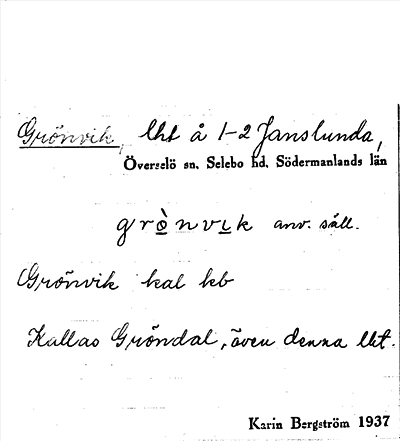 Grönvik, lht å 1-2 Janslunda,
Överselö sn. Selebo hd. Södermanlands län
grò̤nvi̤k anv. säll.
Grönvik kal kb
Kallas Gröndal, även denna lht.
Karin Bergström 1937